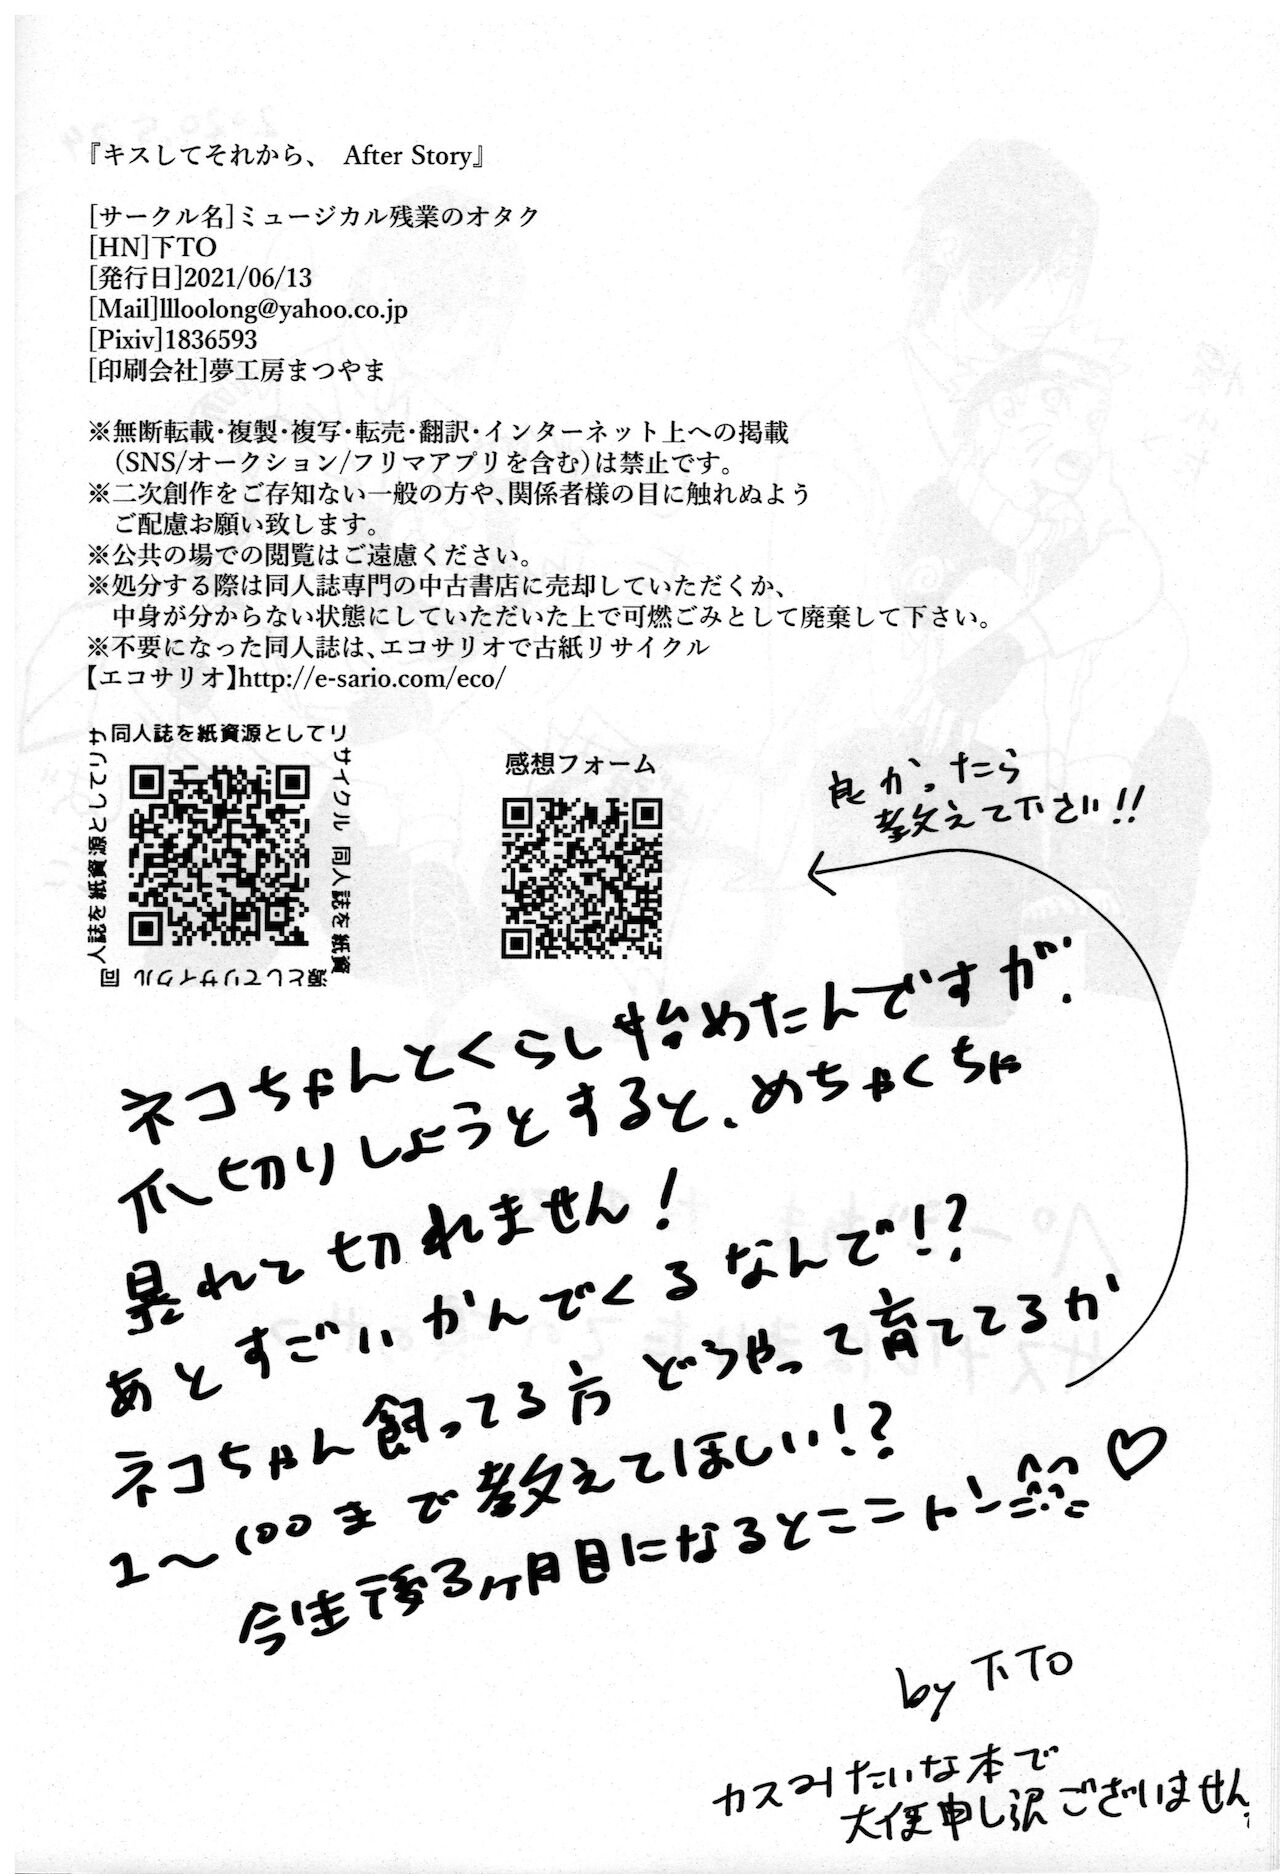 『キスしてそれから、 After Story』
[サークル名]ミュージカル残業のオタク
[HN]下TO
[発行日]2021/06/13
[Mail]llloolong@yahoo.co.jp
[Pixiv]1836593
[印刷会社]夢工房まつやま
※無断転載・複製・複写・転売・翻訳・インターネット上への掲載
(SNS/オークション/フリマアプリを含む)は禁止です。
※二次創作をご存知ない一般の方や、関係者様の目に触れぬよう
ご配慮お願い致します。
※公共の場での閲覧はご遠慮ください。
※処分する際は同人誌専門の中古書店に売却していただくか、
中身が分からない状態にしていただいた上で可燃ごみとして廃棄して下さい。
※不要になった同人誌は、エコサリオで古紙リサイクル
【エコサリオ】http://e-sario.com/eco/
同人誌を紙資源としてリ
サイクル 同人誌を紙資
源としてリサイクル 同
人誌を紙資源としてリサ
感想フォーム
良かったら
教えて下さい!!
ネコちゃんとくらし始めたんですが、
爪切りしようとすると、めちゃくちゃ
暴れて切れません!
あとすごいかんでくるなんで!?
ネコちゃん飼ってる方どうやって育ててるか
1～100まで教えてほしい!?
今生後3ヶ月目になるとこニャン♡
by下TO
カスみたいな本で
大便申し訳ございません